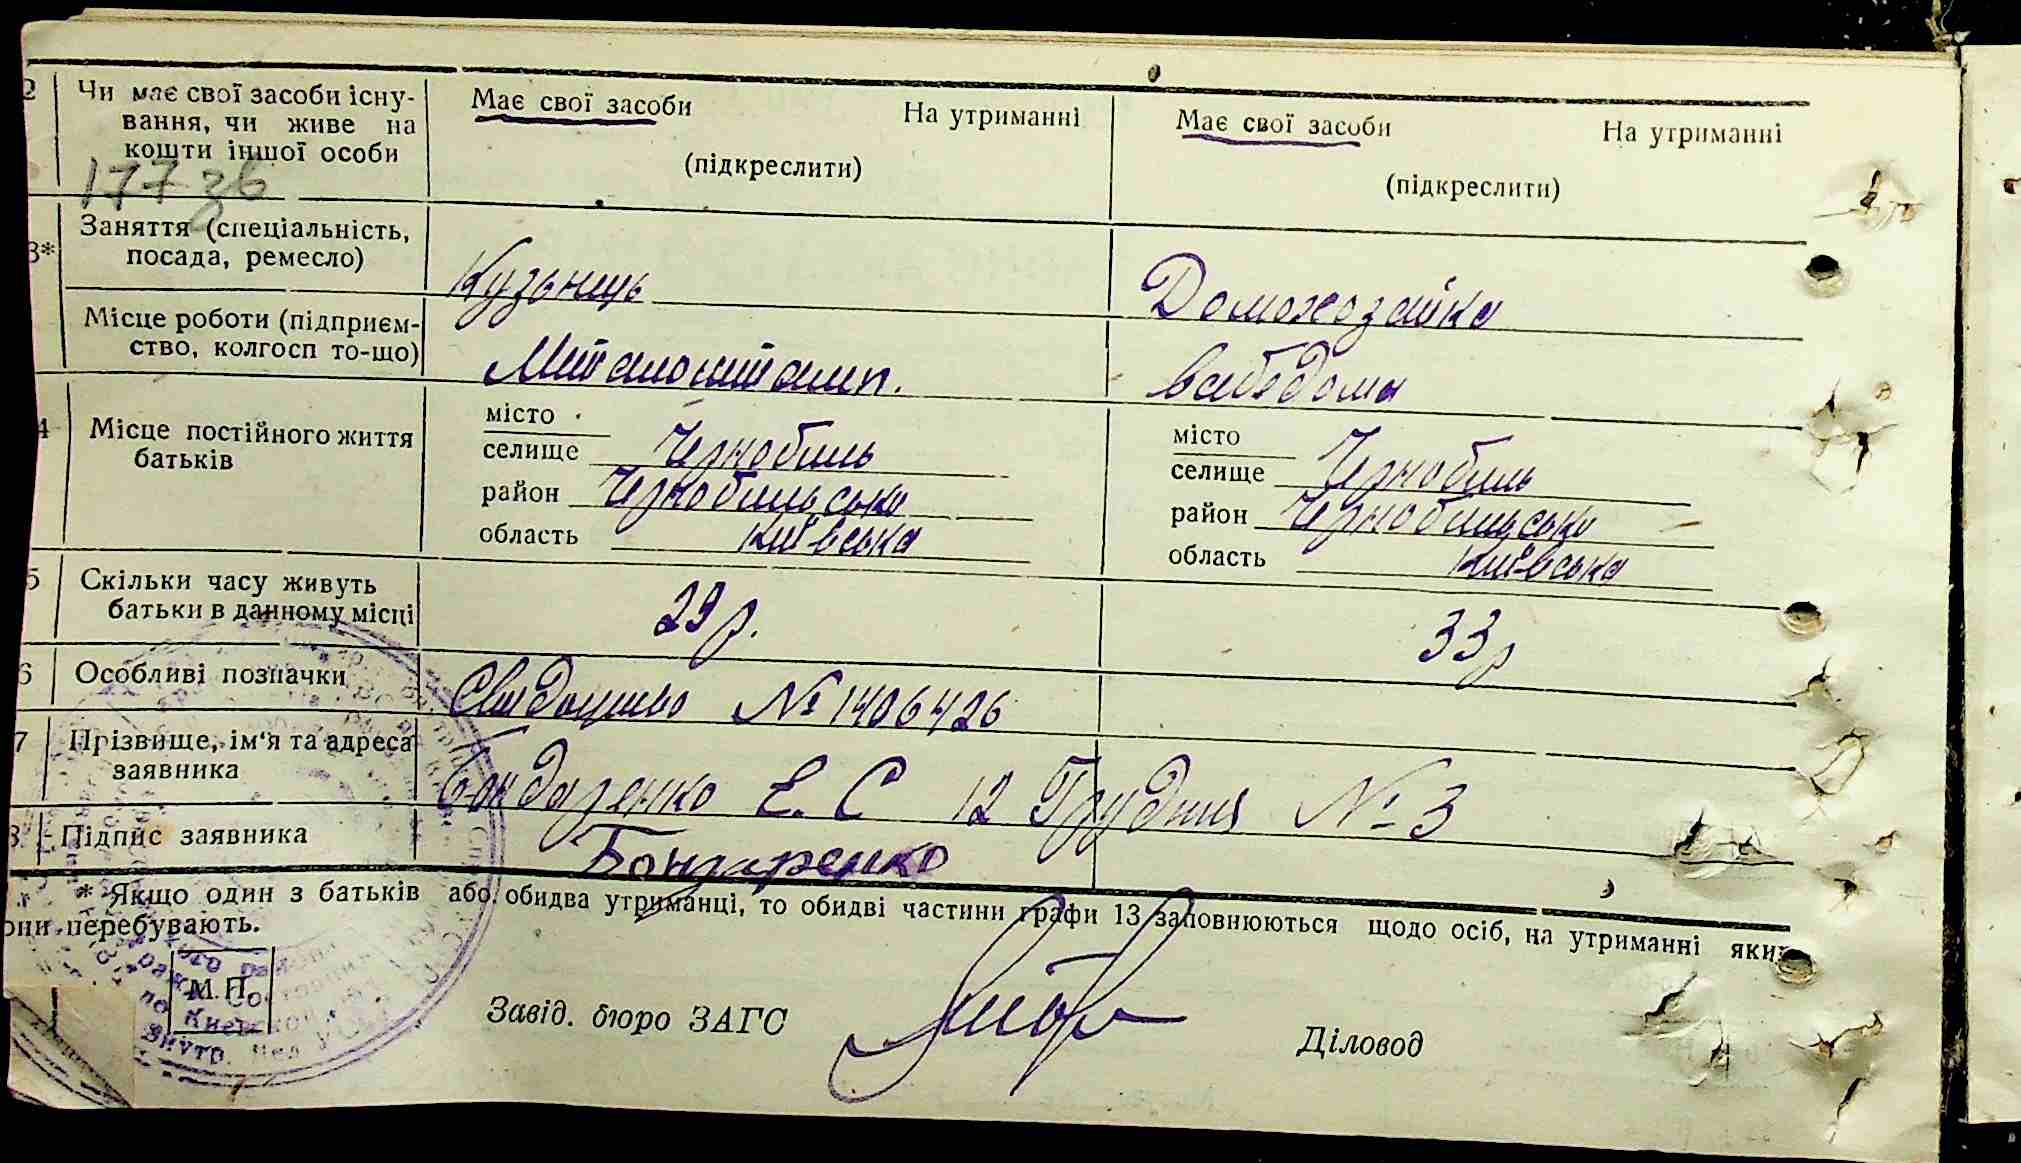 2 Чи має свої засоби існу-
вання, чи живе на
кошти іншої особи
Має свої засоби На утриманні
(підкреслити)
Має свої засоби На утриманні
(підкреслити)
177
3* Заняття (спеціальність,
посада, ремесло)
Кузънець
Домохозайка
Місце роботи (підприєм-
ство, колгосп то-що)
Металоштамп.
4 Місце постійного життя
батьків
місто
селище Чернобиль
район Чернобильська
область Київська
місто
селище Чернобиль
район Чернобильська
область Київська
5 Скільки часу живуть
батьки в данному місці
29 р.
33 р
6 Особливі позначки
Свидоцтво № 1406426
7 Прізвище, ім'я та адреса
заявника
Бондаренко Е. С 12 Грудня № 3
8. Підпис заявника
Бондаренко
* Якщо один з батьків або обидва утриманці, то обидві частини графи 13 заповнюються щодо осіб, на утриманні яких
они перебувають.
М.П.
Завід. бюро ЗАГС
Діловод